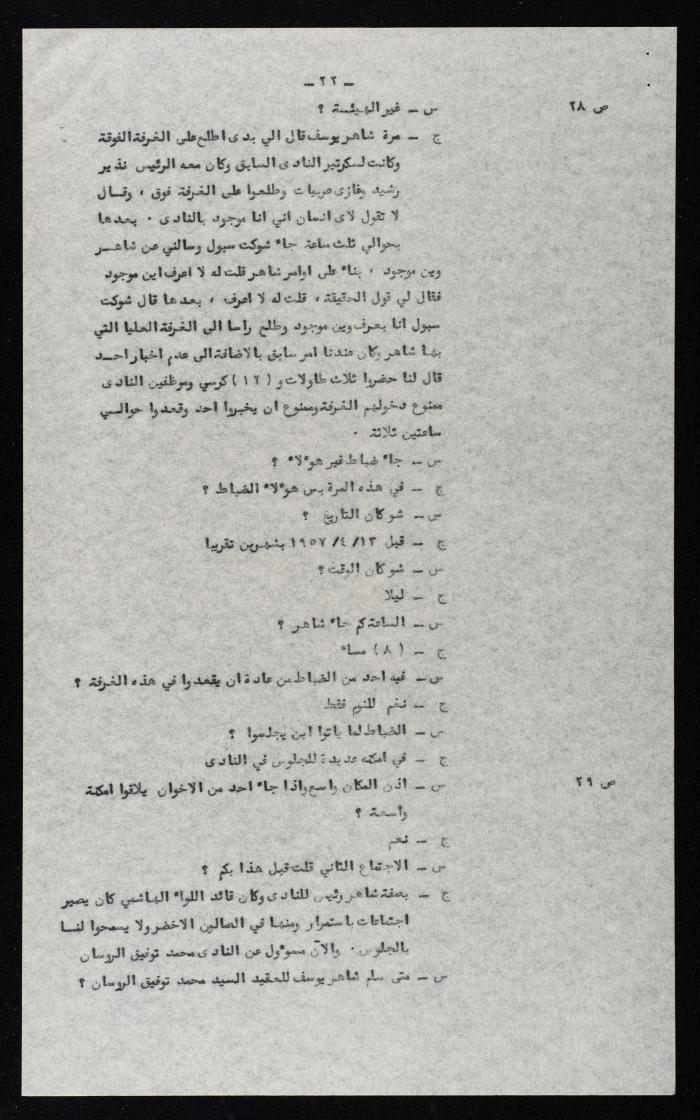 ـ ٢٢ ـ
ص ٢٨
س ـ غير الهيئسة ؟
ج ـ مرة شاهر يوسف قال الي بدى اطلع على الغرفة الفوقة
وكانت لسكرتير النادى السابق وكان معه الرئيس نذير
رشيد وغازى عربيات وطلعوا على الغرفة فوق ، وقسال
لا تقول لاى انسان اني انا موجود بالنادى . بعدها
بحوالي ثلث ساعة جاء شوكت سبول وسالني عن شاهسر
وين موجود ، بناء على اوامر شاهر قلت له لا اعرف اين موجود
فقال لي قول الحقيقة ، قلت له لا اعرف ، بعدها قال شوكت
سبول انا بعرف وين موجود وطلع راسا الى الغرفة العليا التي
بها شاهر وكان عندنا امر سابق بالاضافة الى عدم اخبار احسد
قال لنا حضروا ثلاث طاولات و ( ١٢ ) كرسي وموظفين النادى
ممنوع دخولهم الغرفة وممنوع ان يخبروا احد وقعدوا حوالسي
ساعتين ثلاثة .
س ـ جاء ضباط غير هوءلاء ؟
ج ـ في هذه المرة بس هوءلاء الضباط ؟
س ـ شو كان التاريخ ؟
ج ـ قبل ١٣/ ٤/ ١٩٥٧ بشهرين تقريبا
س ـ شو كان الوقت ؟
ج ـ ليلا
س ـ الساعة كم جاء شاهر ؟
ج ـ ( ٨ ) مساء
س ـ فيه احد من الضباط من عادة ان يقعدوا في هذه الغرفة ؟
ج ـ نعم للنوم فقط
س ـ الضباط لما باتوا اين يجلسوا ؟
ج ـ في امكنه عديدة للجلوس في النادى
ص ٢٩
س ـ اذن المكان واسع واذا جاء احد من الاخوان يلاقوا امكنة
واسعة ؟
ج ـ نعم
س ـ الاجتماع الثاني قلت قبل هذا بكم ؟
ج ـ بصفة شاهر رئيس للنادى وكان قائد اللواء الهاشمي كان يصير
اجتماعات باستمرار ومنها في الصالون الاخضر ولا يسمحوا لنسا
بالجلوس . والآن مسوءول عن النادى محمد توفيق الروسان
س ـ متى سلم شاهر يوسف للعقيد السيد محمد توفيق الروسان ؟